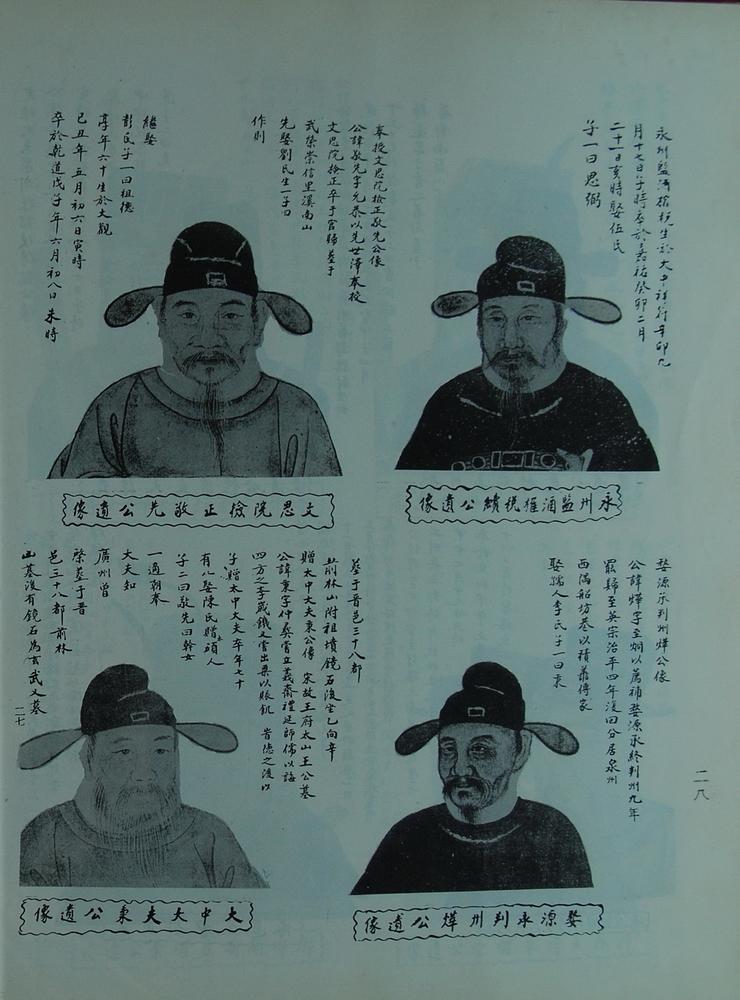 永州監酒榷稅生於大中祥符辛卯九
月十七日子時卒於嘉祐癸卯二月
二十一日亥時娶伍氏
子一曰思弼
永州監酒榷稅績公遺像
奉授文思院檢正敬先公像
公諱敬先字允恭以先世澤奉授
文思院檢正卒于官歸墓于
武榮崇信里溪南山
先娶劉氏生一子曰
作則
繼娶
彭氏子一曰祖德
享年六十生於大觀
己丑年五月初六日寅時
卒於乾道戊子年六月初八日未時
文思院儉正敬先公遺像
婺源丞判州燁公像
公諱燁字至炯以蔭補婺源丞終判州九年
罷歸至英宗治平四年復回分居泉州
西隅船坊巷以積善傳家
娶孺人李氏子一曰
婺源丞判州燁公遺像
墓于晉邑三十八都
前林山附祖墳鏡石後坐乙向辛
贈太中大夫東公傳 宋故王府太山王公墓
公諱東字仲彝嘗立義齋禮延師儒以誨
四方之李歲饑又嘗出粟以賑飢 皆德之後以
子贈太中大夫卒年七十
有八娶陳氏贈碩人
子二曰敬先曰幹女
一適朝奉
大夫知
廣州曾
榮墓于晉
邑三十八都前林
山墓後有鏡石為玄武又墓
大中大夫東公遺像
二七
二八